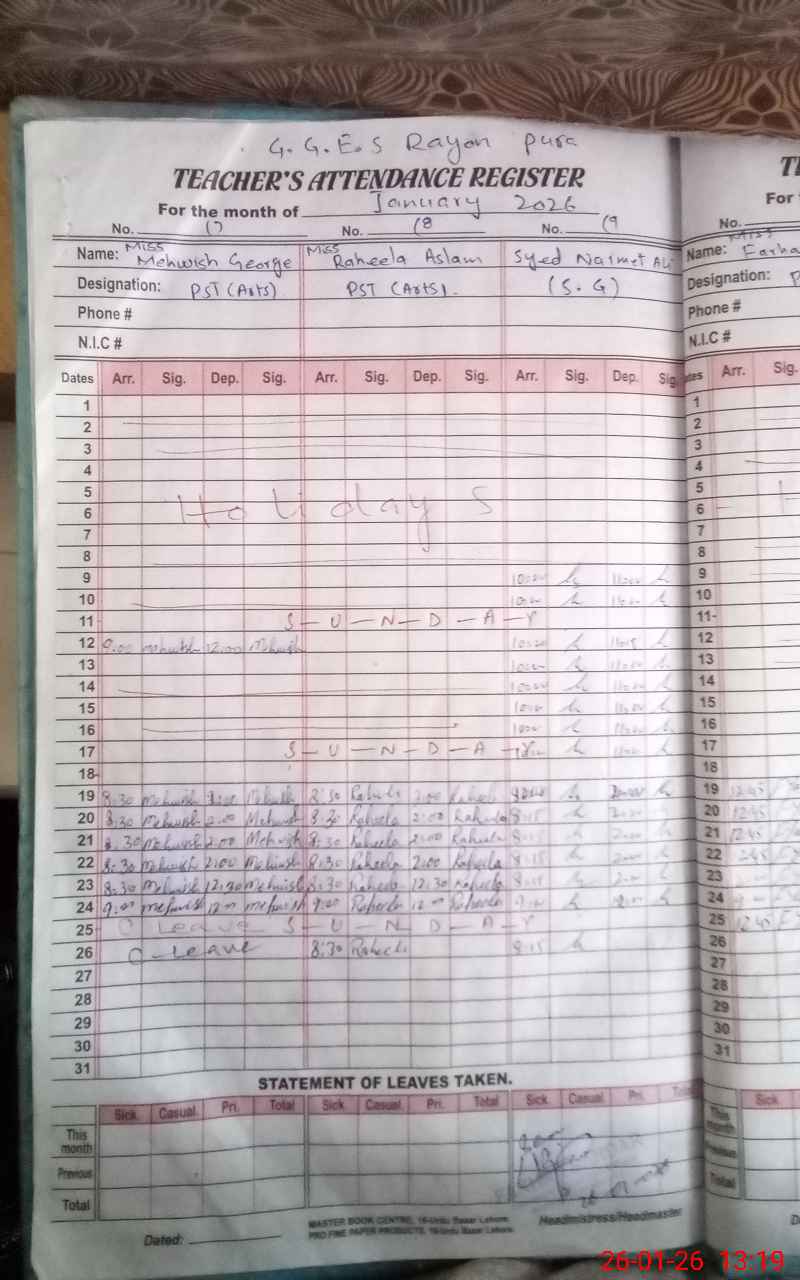 G.G.E.S Rayon pura
TEACHER'S ATTENDANCE REGISTER
For the month of January 2026
No. 17 No. 18 No. 19
Name: Miss Mehwish George Miss Raheela Aslam Syed Naimet Ali
Designation: PST (Arts) PST (Arts). (S.G)
Phone #
N.I.C #
Dates Arr. Sig. Dep. Sig. Arr. Sig. Dep. Sig. Arr. Sig. Dep. Sig.
1
2
3
4
5
Holidays
6
7
8
9 10:00 11:00
10 10:00 11:00
11 S-U-N-D-A-Y
12 9.00 Mehwish 12:00 Mehwish 10:00 11:15
13 10:00 11:00
14 10:00 11:00
15 10:00 11:00
16 10:00 11:00
17 S-U-N-D-A-Y 11:00
18
19 8:30 Mehwish 2:00 Mehwish 8:30 Raheela 2:00 Raheela 2:00
20 8:30 Mehwish 2:00 Mehwish 8:30 Raheela 2:00 Raheela 8:15 2:00
21 8:30 Mehwish 2:00 Mehwish 8:30 Raheela 2:00 Raheela 8:15 2:00
22 8:30 Mehwish 2:00 Mehwish 8:30 Raheela 2:00 Raheela 8:15 2:00
23 8:30 Mehwish 12:30 Mehwish 8:30 Raheela 12:30 Raheela 8:15 2:00
24 9:00 Mehwish 12:00 Mehwish 9:00 Raheela 12:00 Raheela 9:00
25 C Leave S-U-N-D-A-Y
26 C-Leave 8:30 Raheela 8:15
27
28
29
30
31
STATEMENT OF LEAVES TAKEN.
Sick Casual Pri. Total Sick Casual Pri. Total Sick Casual Pri. Total
This month
Previous
Total
Dated:
MASTER BOOK CENTRE, 16-Urdu Bazar Lahore
PRO FINE PAPER PRODUCTS, 16-Urdu Bazar Lahore
Headmistress/Headmaster
No.
Name: Miss Farha
Designation:
Phone #
N.I.C #
Arr. Sig.
1
2
3
4
5
6
7
8
9
10
11
12
13
14
15
16
17
18
19 12:45
20 12:45
21 12:45
22 2:45
23
24
25 12:45
26
27
28
29
30
31
Sick
This month
Previous
Total
26-01-26 13:19